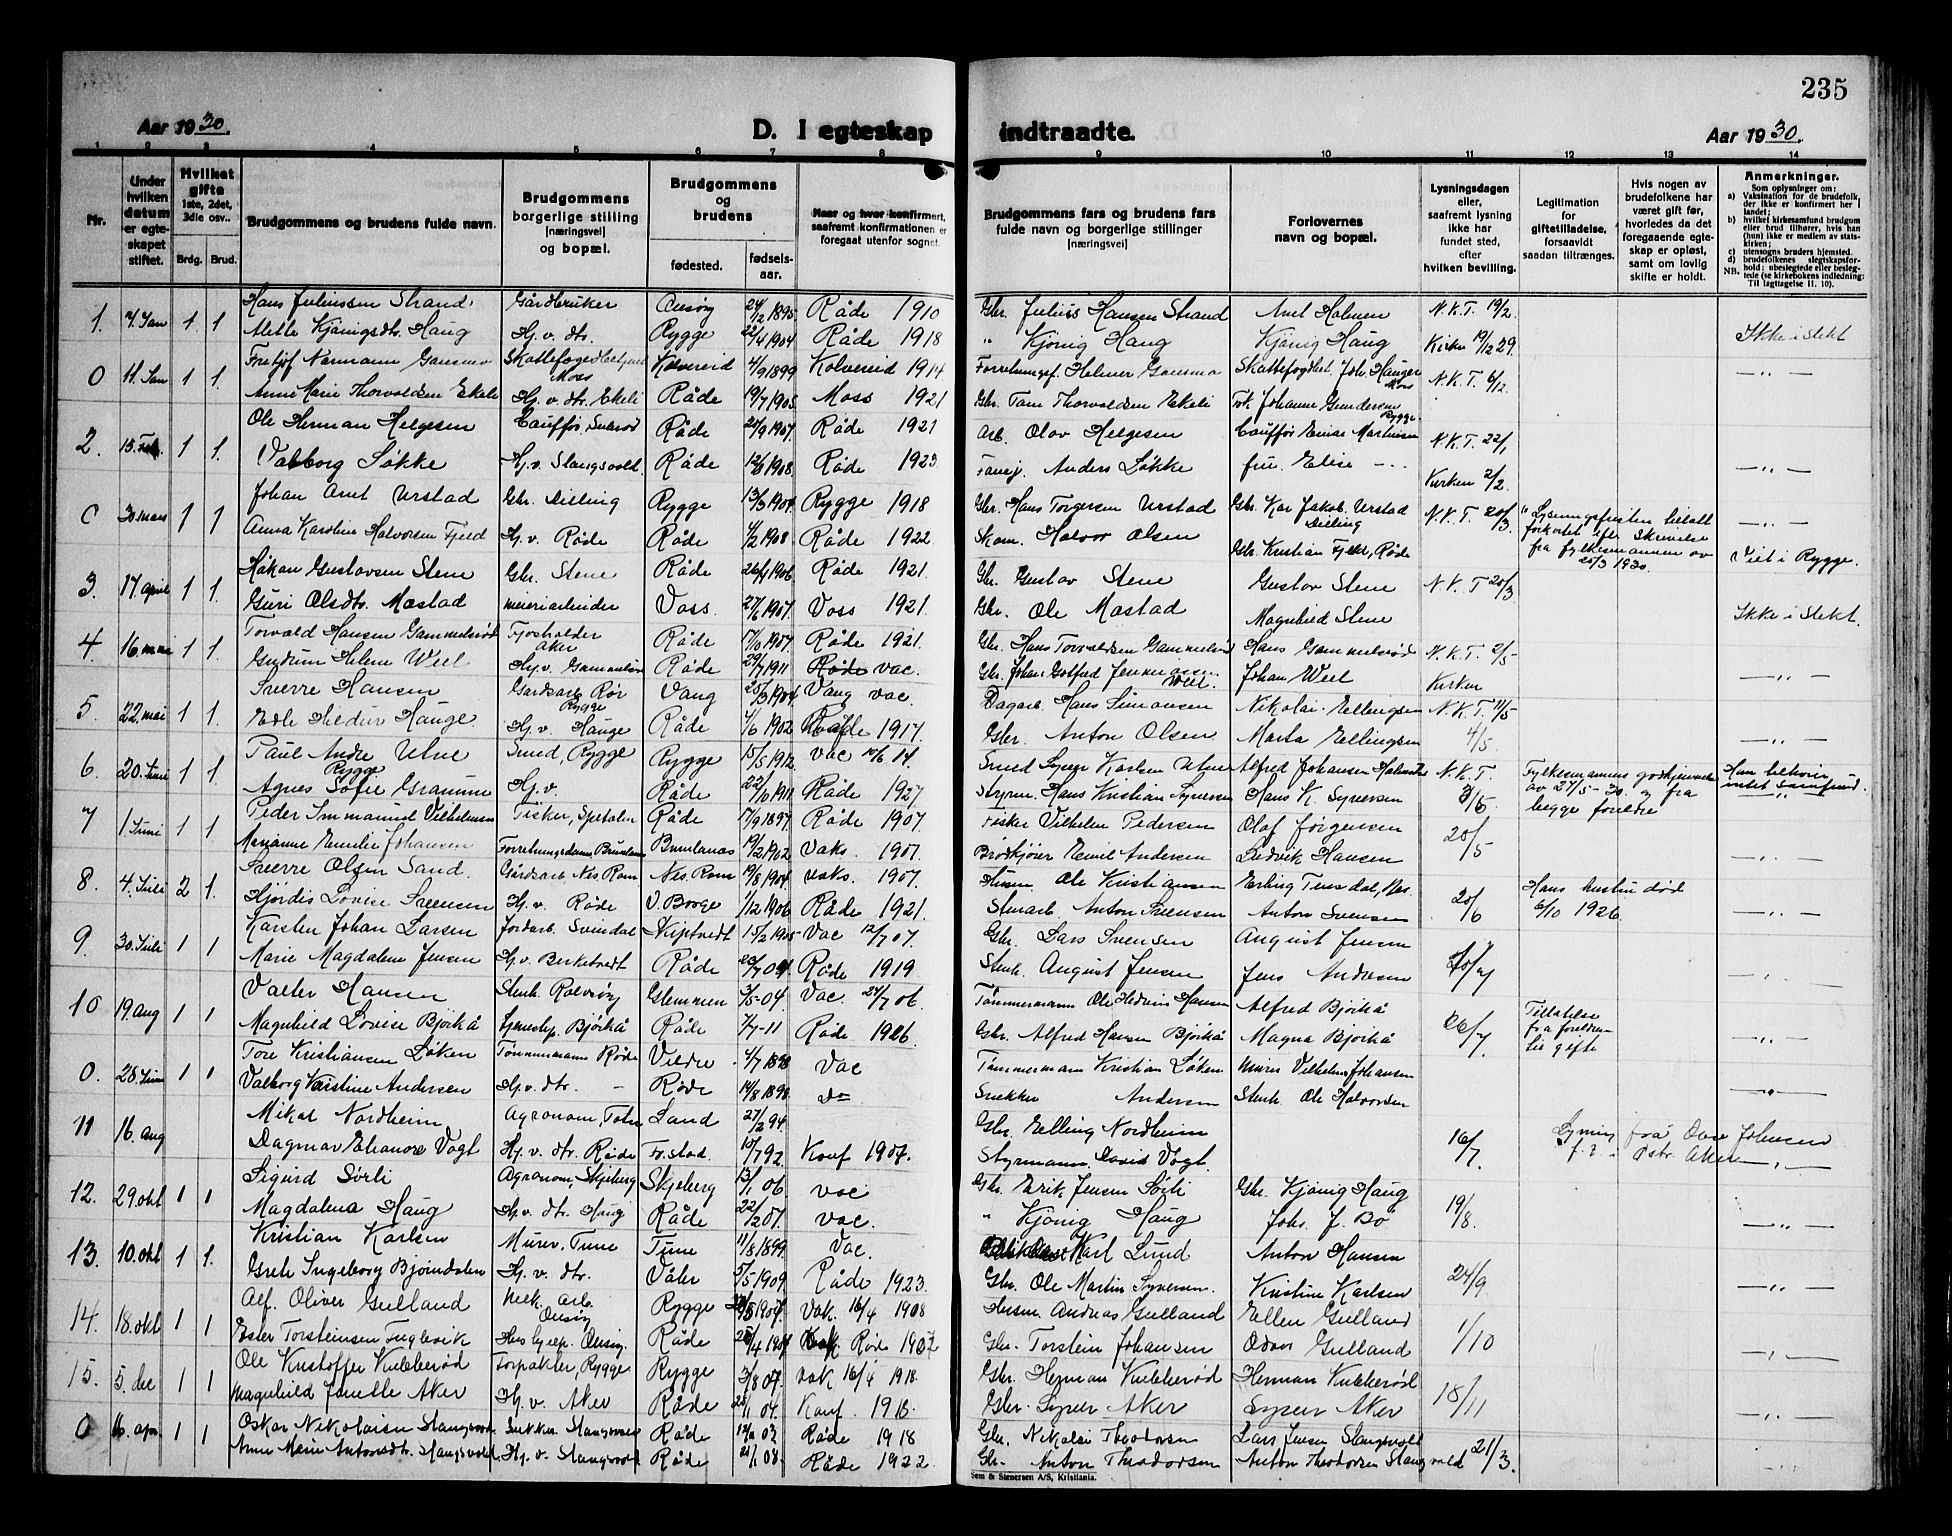 235
Aar 1930.
D. I egteskap
indtraadte.
Aar 1930.
1 2 3 4 5 6 7 8 9 10 11 12 13 14
Nr.
Under hvilken datum er egteskapet stiftet.
Hvilket gifte 1ste, 2det, 3die osv..
Brdg. Brud.
Brudgommens og brudens fulde navn.
Brudgommens borgerlige stilling [næringsvei] og bopæl.
Brudgommens og brudens
fødested.
fødselsaar.
Naar og hvor konfirmert, saafremt konfirmationen er foregaat utenfor sognet.
Brudgommens fars og brudens fars fulde navn og borgerlige stillinger [næringsvei]
Forlovernes navn og bopæl.
Lysningsdagen eller, saafremt lysning ikke har fundet sted, efter hvilken bevilling.
Legitimation for giftetilladelse, forsaavidt saadan tiltrænges.
Hvis nogen av brudefolkene har været gift før, hvorledes da det foregaaende egteskap er opløst, samt om lovlig skifte er holdt.
Anmerkninger.
Som oplysninger om:
a) Vaksination for de brudefolk, der ikke er konfirmert her i landet;
b) hvilket kirkesamfund brudgom eller brud tilhører, hvis han (hun) ikke er medlem av statskirken;
c) utensogns bruders hjemsted.
d) brudefolkenes slegtskapsforhold: ubeslegtede eller beslegtede (se kirkebokens indledning: Til Iagttagelse 11. 10).
NB.
1. 4. Jan 1 1 Hans Juliussen Strand Gårdbruker Onsøy 24/2 1895 Råde 1910 Gbr. Julius Hansen Strand Arnt Holmen N.K.T. 19/2.
Alette Kjønigsdtr. Haug Hj. v. dtr. Rygge 22/4 1904 Råde 1918 " Kjönig Haug Kjönig Haug Kirken 19/12 29. Ikke i slekt
0 11. Jan 1 1. Fritjof Normann Gansmo Moss Kolvereid 4/9 1899 Kolvereid 1914 Helmer Gansmo Joh. Hauger Moss N.K.T. 6/12.
Anne Marie Thorvaldsen Ekeli Hj. v. dtr. Ekeli Råde 19/7 1905 Moss 1921 Gbr. Thorvaldsen Ekeli Johanne Gundersen Rygge
2. 15. Feb. 1 1. Ole Herman Helgesen Råde 27/9 1907. Råde 1921 Arb. Olav Helgesen N.K.T. 22/1
Valborg Løkke Hj. v. Slangsvold. Råde 12/6 1908. Råde 1923 Anders Løkke fru. Elise Kirken 2/2.
0 30 mars 1 1 Johan Arnt Urstad Gbr. Dilling Rygge 13/3 1904 Rygge 1918 Gbr. Hans Torgersen Urstad Gbr. Kar Jakob Urstad Dilling N.K.T. 20/3. "Lysningsfristen betalt
Anna Karoline Halvorsen Fjeld Hj. v. Råde Råde 4/2 1908 Råde 1922. Skom. Halvor Olsen Gbr. Kristian Fjeld, Råde forkortet efter skrivelse fra fylkesmannen av 20/3 1930. Viet i Rygge.
3. 17. april 1 1. Håkon Gustavsen Stene Gbr. Stene Råde 26/4 1906 Råde 1921. Gbr. Gustav Stene Gustav Stene N.K.T 20/3
Guri Olsdtr. Mæstad meieriarbeider Voss. 27/6 1907. Voss 1921. Gbr. Ole Mæstad Magnhild Stene Ikke i slekt.
4. 16. mai 1 1. Torvald Hansen Gammelsrød Fjøsholder Aker Råde 17/10 1907. Råde 1921. Gbr. Hans Torvaldsen Gammelsrød Hans Gammelsrød N.K.T. 2/5
Gudrun Helene Weel Hj. v. Gammelsrød Råde 29/7 1911 Råde vac. Gbr. Johan Gotfred Weel. Johan Weel Kirken
5. 22. mai 1 1. Sverre Hansen Gårdsarb. Rør Rygge Vang 25/3 1904 Vang vac. Dagarb. Hans Simonsen Nikolai Ellingsen N.K.T. 11/5
Edle Hildur Hauge Hj. v. Hauge Råde 4/6 1902 Råde 1917. Gbr. Anton Olsen Marta Ellingsen 4/5.
6. 20. Juni 1 1. Paul Andre Utne Rygge Smed, Rygge Rygge 15/5 1912 vac 10/6 14. Smed Karlsen Utne Alfred Johansen N.K.T. Fylkesmannens godkjennelse
Agnes Sofie Gramm Hj. v. Råde 22/10 1911 Råde 1927 Styrm. Hans Kristian Syversen Hans K. Syversen 3/6. av 27/5-30. og fra begge foreldre Han tilhører intet samfund.
7 1. Juni 1 1 Peder Immanuel Vilhelmsen Fisker, Spetalen Råde 17/9 1897. Råde 1907. Fisker Vilhelm Pedersen Olaf Jørgensen 20/5
Marianne Emilie Johansen Forretningsdame, 19/2 1902 Vaks. 1907. Brødkjører Emil Andersen Ludvik Hansen
8. 4. Juli 2 1. Sverre Olsen Sand. Gårdsarb. Nes. Rom Nes. Rom 19/8 1904 vaks. 1907. Ole Kristiansen Erling 20/6 Hans hustru død 6/10 1926.
Hjørdis Lovise Svensen Hj. v. Råde V. Borge 1/12 1906 Råde 1921. Stenarb. Anton Svensen Anton Svensen
9. 30. Juli 1 1 Karsten Johan Larsen Jordarb. Svindal Skiptvedt 15/2 1905 Vac 12/7 07. Gbr. Lars Svensen August Jensen 20/7
Marie Magdalene Jensen Hj. v. Berketvedt Råde Råde 1919 Stenh. August Jensen Jens Andersen
10 19. aug 1 1 Valter Hansen Stenh. Rolvsøy Glemmen 3/5-04 Vac. 24/7 06 Tømmermann Ole Hansen Alfred Björkå 26/7 Tillatelse fra foreldrene til gifte
Magnhild Lovise Björkå Björkå Råde 7/7-11 Råde 1926. Gbr. Alfred Hansen Björkå Magna Björkå
0. 28. Juni 1 1 Tore Kristiansen Løken Tømmermann Råde 4/7 1898 Vac Tømmermann Kristian Løken Murer Vilhelm Johansen
Valborg Kristine Andersen Hj. v. dtr. Råde 14/8 1898. Snekker Andersen Stenh. Ole Halvorsen
11 16. aug Mikal Nordheim Agronom, Land 27/2 94. Gbr. Elling Nordheim 16/7. Lysning fra Johnsen
Dagmar Eleanore Vogt Hj. v. dtr. Råde Fr.stad. 10/7 92 Konf 1907. Styrmann David Vogt. Aker
12. 29. okt 1 1 Sigurd Sörli Agronom, Skjeberg Skjeberg 13/1 06 vac Gbr. Erik Jensen Sörli Gbr. Kjönig Haug 19/8.
Magdalena Haug Hj. v. dtr. Haug Råde 22/2 07. vac. " Kjönig Haug Johs. J. Bø
13. 10. okt 1 1. Kristian Karlsen Murer. Tune Tune 11/8 1899. Vac. Karl Lund Anton Hansen 24/9
Grete Ingeborg Bjørndalen Hj. v. dtr. Våler 5/5 1909 Råde 1923. Gbr. Ole Martin Syversen. Kristine Karlsen
14. 18. okt 1 1 Alf. Oliver Gulland Mek. arb. Onsøy Rygge Vak. 16/4 1908 Andreas Gulland Ellen Gulland 1/10
Ester Torsteinsen Fuglevik Onsøy. Råde Råde Gbr. Torstein Johansen Oddvar Gulland
15. 5. des 1 1 Ole Kristoffer Kulleberød Forpakter, Rygge Rygge 3/8 07. vak 16/4 1918. Gbr. Herman Kulleberød Herman Kulleberød 18/11
Magnhild Jenette Aker Hj. v. Aker Råde Konf. 1918. Gbr. Syver Aker Syver Aker
0 16. apr. 1 1 Oskar Nikolaisen Slangsvold Snekker Slangsvold Råde Råde 1918 Gbr. Nikolai Theodorsen Lars Jensen Slangsvold 21/3.
Anne Marie Antonsdtr. Slangsvold Hj. v. Slangsvold Råde 21/1 08. Råde 1922. Gbr. Anton Theodorsen Anton Theodorsen Slangsvold
Sem & Stenersen A/S, Kristiania.